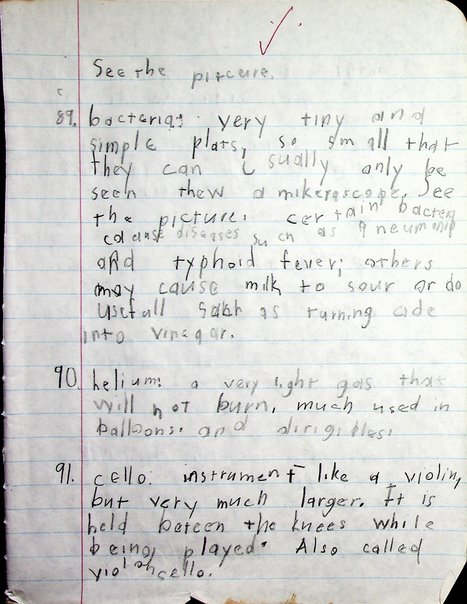 See the pitcure.
89. bacteria: very tiny and
simple plats, so small that
they can usually only be
seen thew a mikeroscope. See
the picture. certain bacteria
cause diseases such as Pneumonia
and typhoid fever; others
may cause milk to sour or do
usefull such as turning cide
into vinegar.
90. helium: a very light gas that
will not burn, much used in
balloons. and dirigibles.
91. cello: instrument like a violin,
but very much larger. It is
held beteen the knees while
being played. Also called
violoncello.